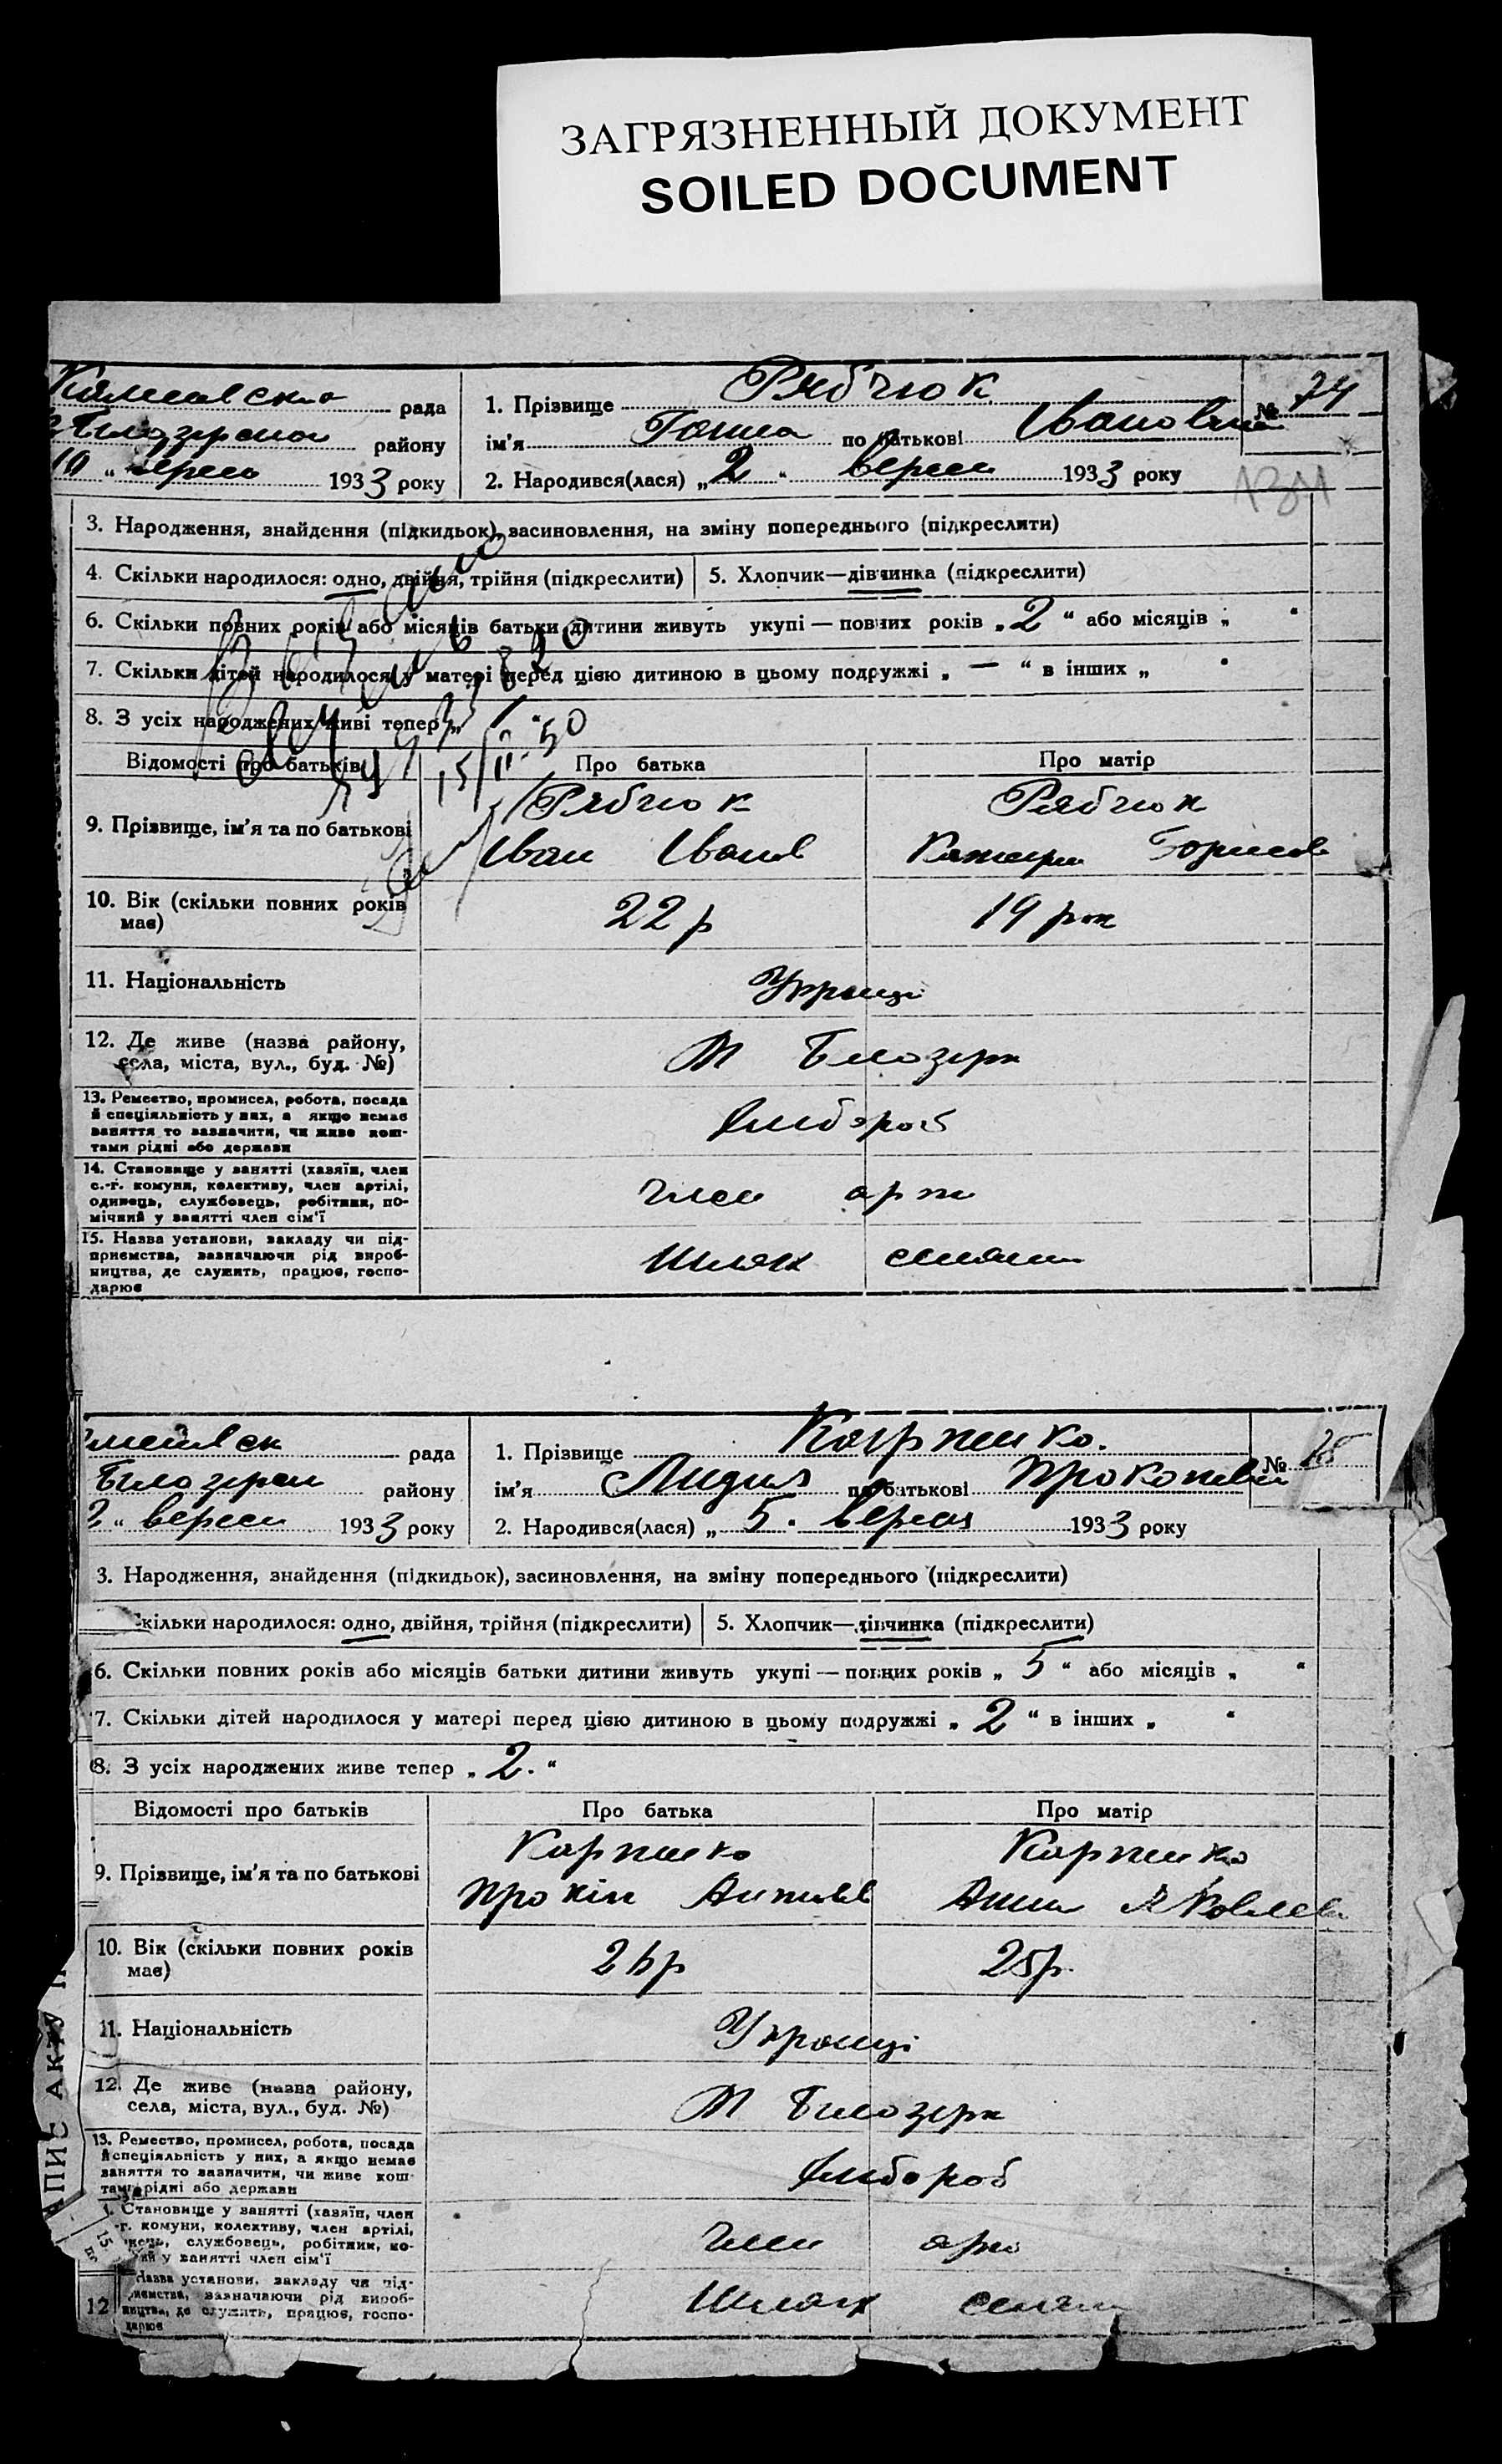 ЗАГРЯЗНЕННЫЙ ДОКУМЕНТ
SOILED DOCUMENT
рада
району
1933 року
1. Прізвище Рябчюк
ім'я Ганна по батькові Іванівна
№ 24
2. Народився(лася) „2“ верес 1933 року
3. Народження, знайдення (підкидьок), засиновлення, на зміну попереднього (підкреслити)
4. Скільки народилося: одно, двійня, трійня (підкреслити)
5. Хлопчик—дівчинка (підкреслити)
6. Скільки повних років або місяців батьки дитини живуть укупі — повних років „2“ або місяців „ “
7. Скільки дітей народилося у матері перед цією дитиною в цьому подружжі „—“ в інших „ “
8. З усіх народжених живі тепер „
15/II-50
Відомості про батьків
Про батька
Про матір
9. Прізвище, ім'я та по батькові
Рябчюк
Іван Іванов
Рябчюк
Катери Борисов
10. Вік (скільки повних років
має)
22 р
19 рок
11. Національність
Україці
12. Де живе (назва району,
села, міста, вул., буд. №)
М Білозерк
13. Ремество, промисел, робота, посада
й спеціяльність у них, а якщо немає
заняття то зазначити, чи живе кош-
тами рідні або держави
хлібороб
14. Становище у занятті (хазяїн, член
с.-г. комуни, колективу, член артілі,
одинець, службовець, робітник, по-
мічний у занятті член сім'ї
член арт
15. Назва установи, закладу чи під-
приємства, зазначаючи рід вироб-
ництва, де служить, працює, госпо-
дарює
Шлях селян
рада
Білозерсн району
верес 1933 року
1. Прізвище Карпенко.
ім'я Лидия по батькові Прокопівн
№ 25
2. Народився(лася) „5. верес 1933 року
3. Народження, знайдення (підкидьок), засиновлення, на зміну попереднього (підкреслити)
кільки народилося: одно, двійня, трійня (підкреслити)
5. Хлопчик—дівчинка (підкреслити)
6. Скільки повних років або місяців батьки дитини живуть укупі — повних років „5“ або місяців „ “
7. Скільки дітей народилося у матері перед цією дитиною в цьому подружжі „2“ в інших „ “
8. З усіх народжених живе тепер „2.“
Відомості про батьків
Про батька
Про матір
9. Прізвище, ім'я та по батькові
Карпенко
Прокіп Антонів
Карпенко
Анна Яковлев
10. Вік (скільки повних років
має)
26р
25р.
11. Національність
Україці
12. Де живе (назва району,
села, міста, вул., буд. №)
М Білозерк
13. Ремество, промисел, робота, посада
й спеціяльність у них, а якщо немає
заняття то зазначити, чи живе кош-
тами рідні або держави
хлібороб
Становище у занятті (хазяїн, член
-г. комуни, колективу, член артілі,
службовець, робітник, по-
у занятті член сім'ї
член арт
Назва установи, закладу чи під-
приємства, зазначаючи рід вироб-
ництва, де служить, працює, госпо-
дарює
Шлях селян
12